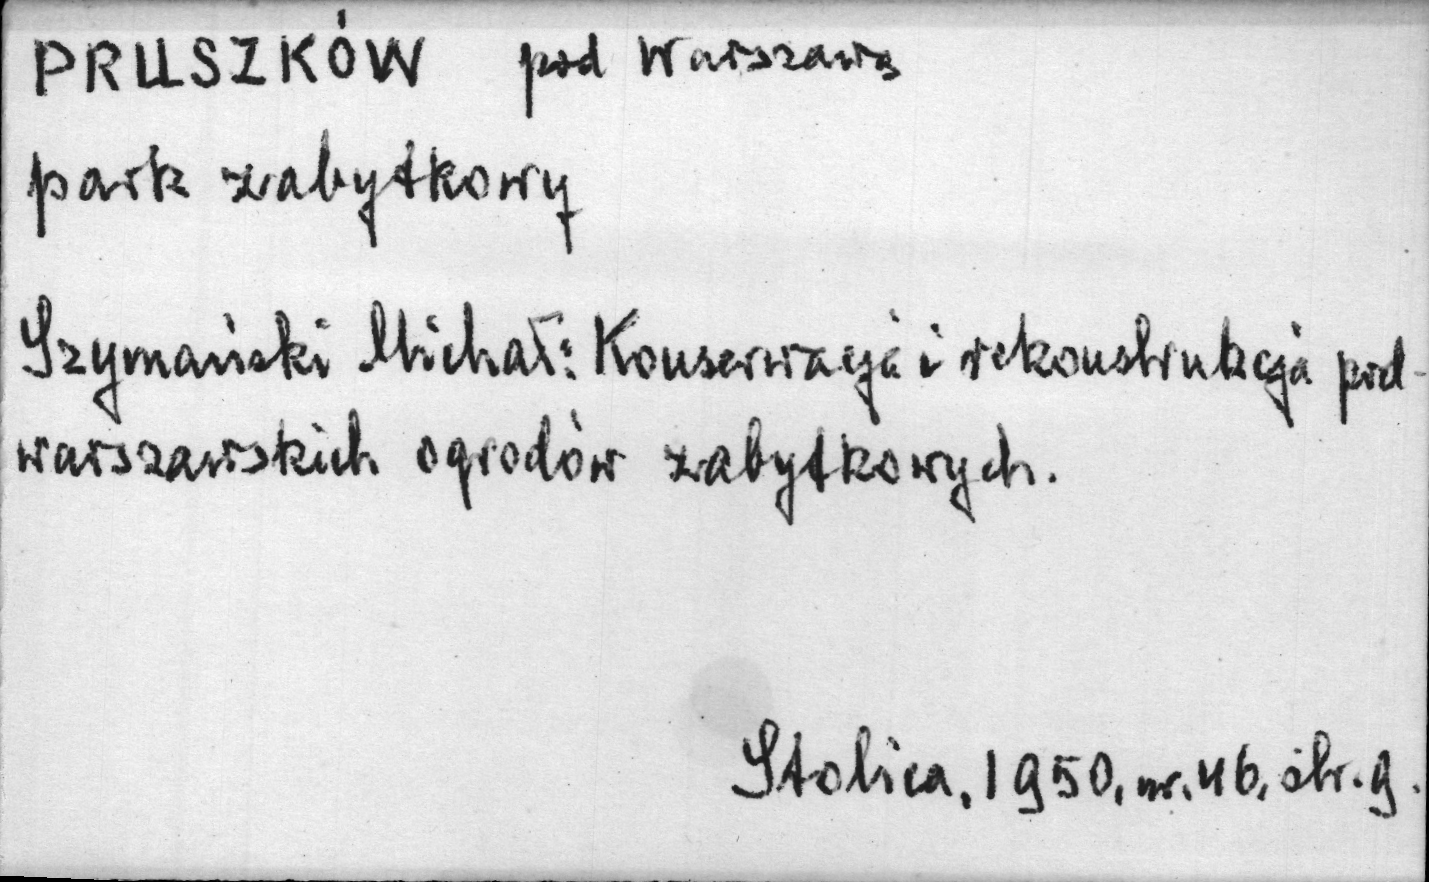 PRUSZKÓW pod Warszawą
park zabytkowy
Szymański Michał: Konserwacja i rekonstrukcja pod-
warszawskich ogrodów zabytkowych.
Stolica, 1950, nr. 46, str. 9.